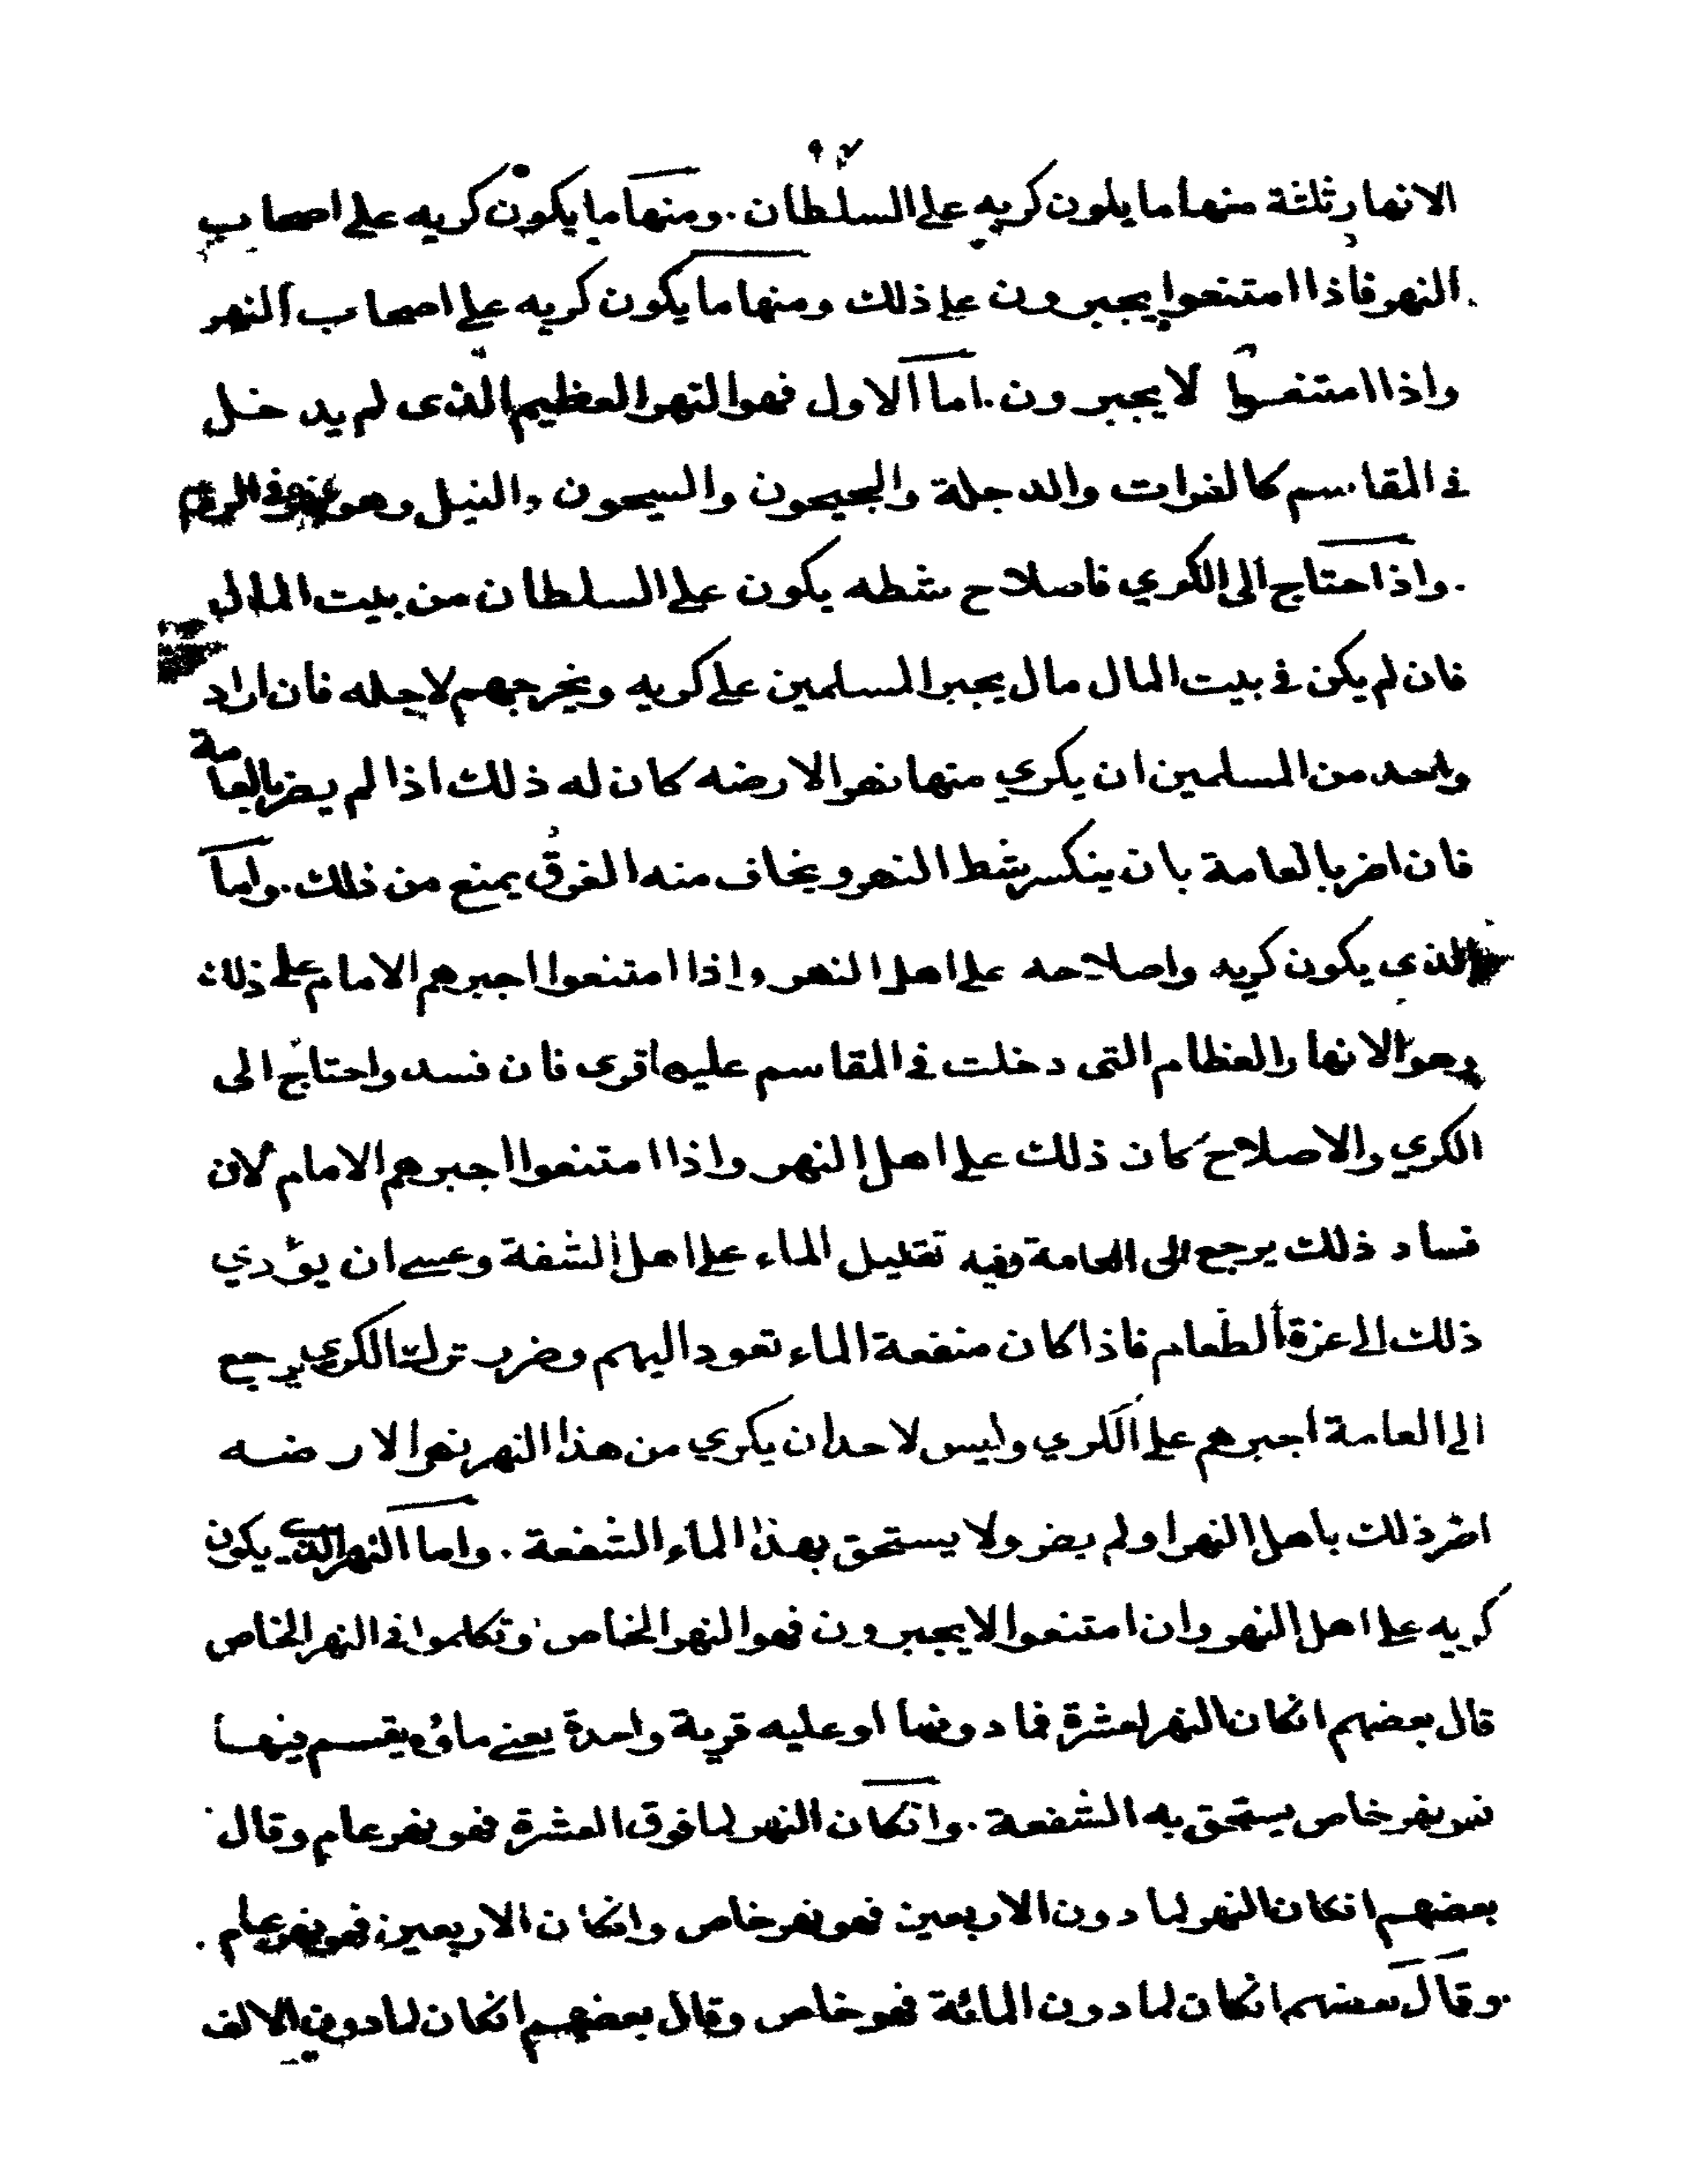 ٩٧
الانهار ثلثة منها ما يكون كريه على السلطان. ومنها ما يكون كريه على اصحاب
النهر فاذا امتنعوا يجبرون على ذلك ومنها ما يكون كريه على اصحاب النهر
واذا امتنعوا لا يجبرون. اما الاول فهو النهر العظيم الذى لم يدخل
فى المقاسم كالفرات والدجلة والجيحون والسيحون والنيل وهو
واذا احتاج الى الكري فاصلاح شطه يكون على السلطان من بيت المال
فان لم يكن فى بيت المال مال يجبر المسلمين على كريه ويخرجهم لاجله فان اراد
واحد من المسلمين ان يكري منها نهرا لارضه كان له ذلك اذا لم يضر بالعامة
فان اضر بالعامة بان ينكسر شط النهر ويخاف منه الغرق يمنع من ذلك. واما
الذى يكون كريه واصلاحه على اهل النهر واذا امتنعوا اجبرهم الامام على ذلك
وهو الانهار العظام التى دخلت فى المقاسم عليها قرى فان فسد واحتاج الى
الكري والاصلاح كان ذلك على اهل النهر واذا امتنعوا اجبرهم الامام لان
فساد ذلك يرجع الى العامة وفيه تقليل الماء على اهل الشفة وعسى ان يؤدي
ذلك الى عزة الطعام فاذا كان منفعة الماء تعود اليهم وضرر ترك الكري يرجع
الى العامة اجبرهم على الكري وليس لاحد ان يكري من هذا النهر نهرا لارضه
اضر ذلك باهل النهر او لم يضر ولا يستحق بهذا الماء الشفعة. واما النهر الذى يكون
كريه على اهل النهر وان امتنعوا لا يجبرون فهو النهر الخاص وتكلموا فى النهر الخاص
قال بعضهم انكان النهر لعشرة فما دونها او عليه قرية واحدة يعنى ماؤه يقسم فيها
فهو نهر خاص يستحق به الشفعة. وانكان النهر لما فوق العشرة فهو نهر عام وقال
بعضهم انكان النهر لما دون الاربعين فهو نهر خاص وانكان الاربعين فهو نهر عام.
وقال بعضهم انكان لما دون المائة فهو خاص وقال بعضهم انكان لما دون الالف